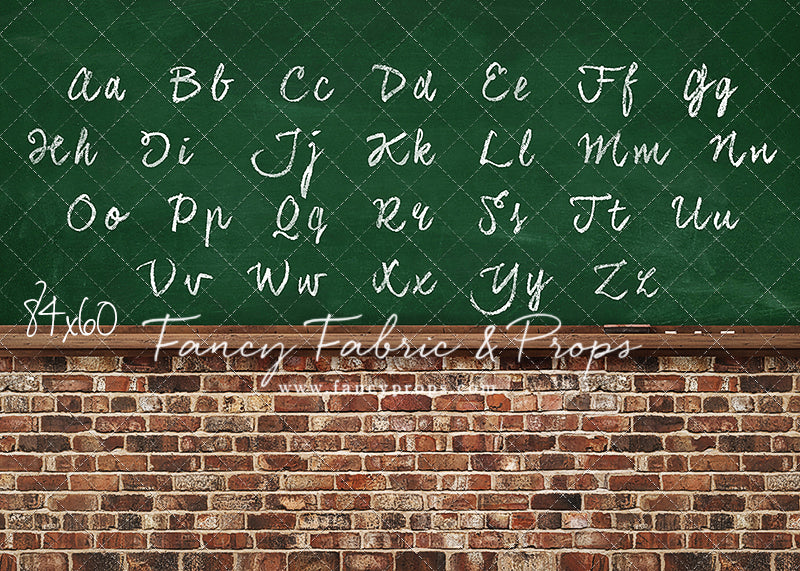 Aa Bb Cc Dd Ee Ff Gg
Hh Ii Jj Kk Ll Mm Nn
Oo Pp Qq Rr Ss Tt Uu
Vv Ww Xx Yy Zz
84x60
Fancy Fabric & Props
www.fancyprops.com